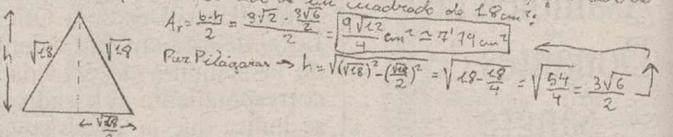 un cuadrado de 18cm²?
A_T = b·h/2 = 3√2 · 3√6/2 / 2 = 9√12/4 cm² ≃ 7'79 cm²
h √18 √18
Por Pitágoras → h = √((√18)² - (√18/2)²) = √(18 - 18/4) = √(54/4) = 3√6/2
√18/2